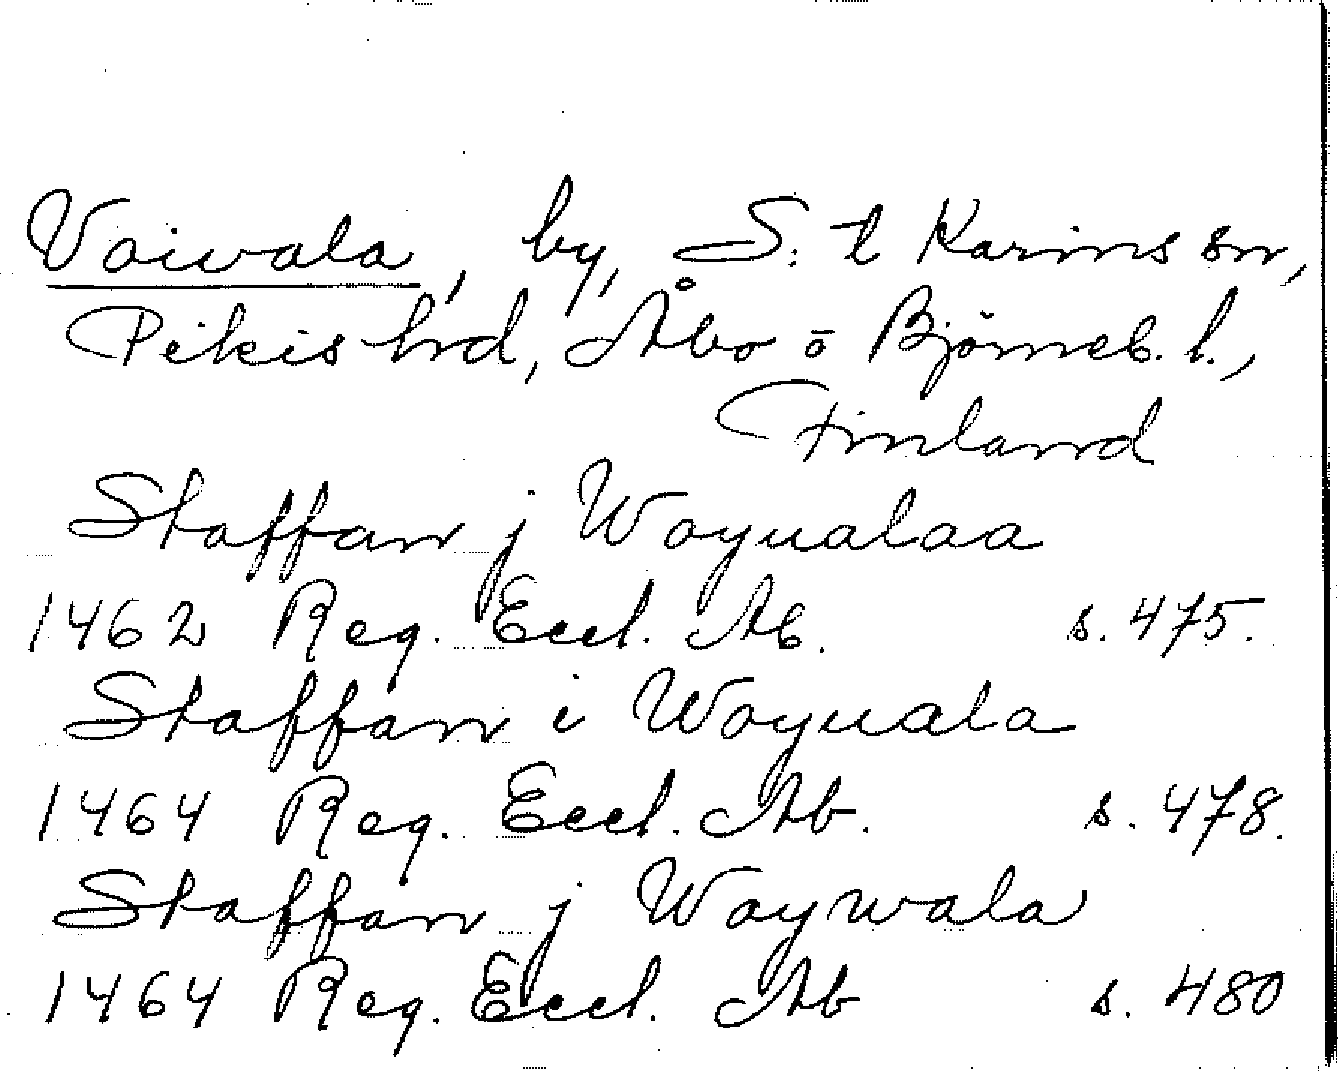 Voivala, by, S:t Karins sn,
Pikis hrd, Åbo o Björneb. l.,
Finland
Staffan j Woyualaa
1462 Reg. Eccl. Ab. s. 475.
Staffan i Woyuala
1464 Reg. Eccl. Ab. s. 478.
Staffan j Woywala
1464 Reg. Eccl. Ab s. 480